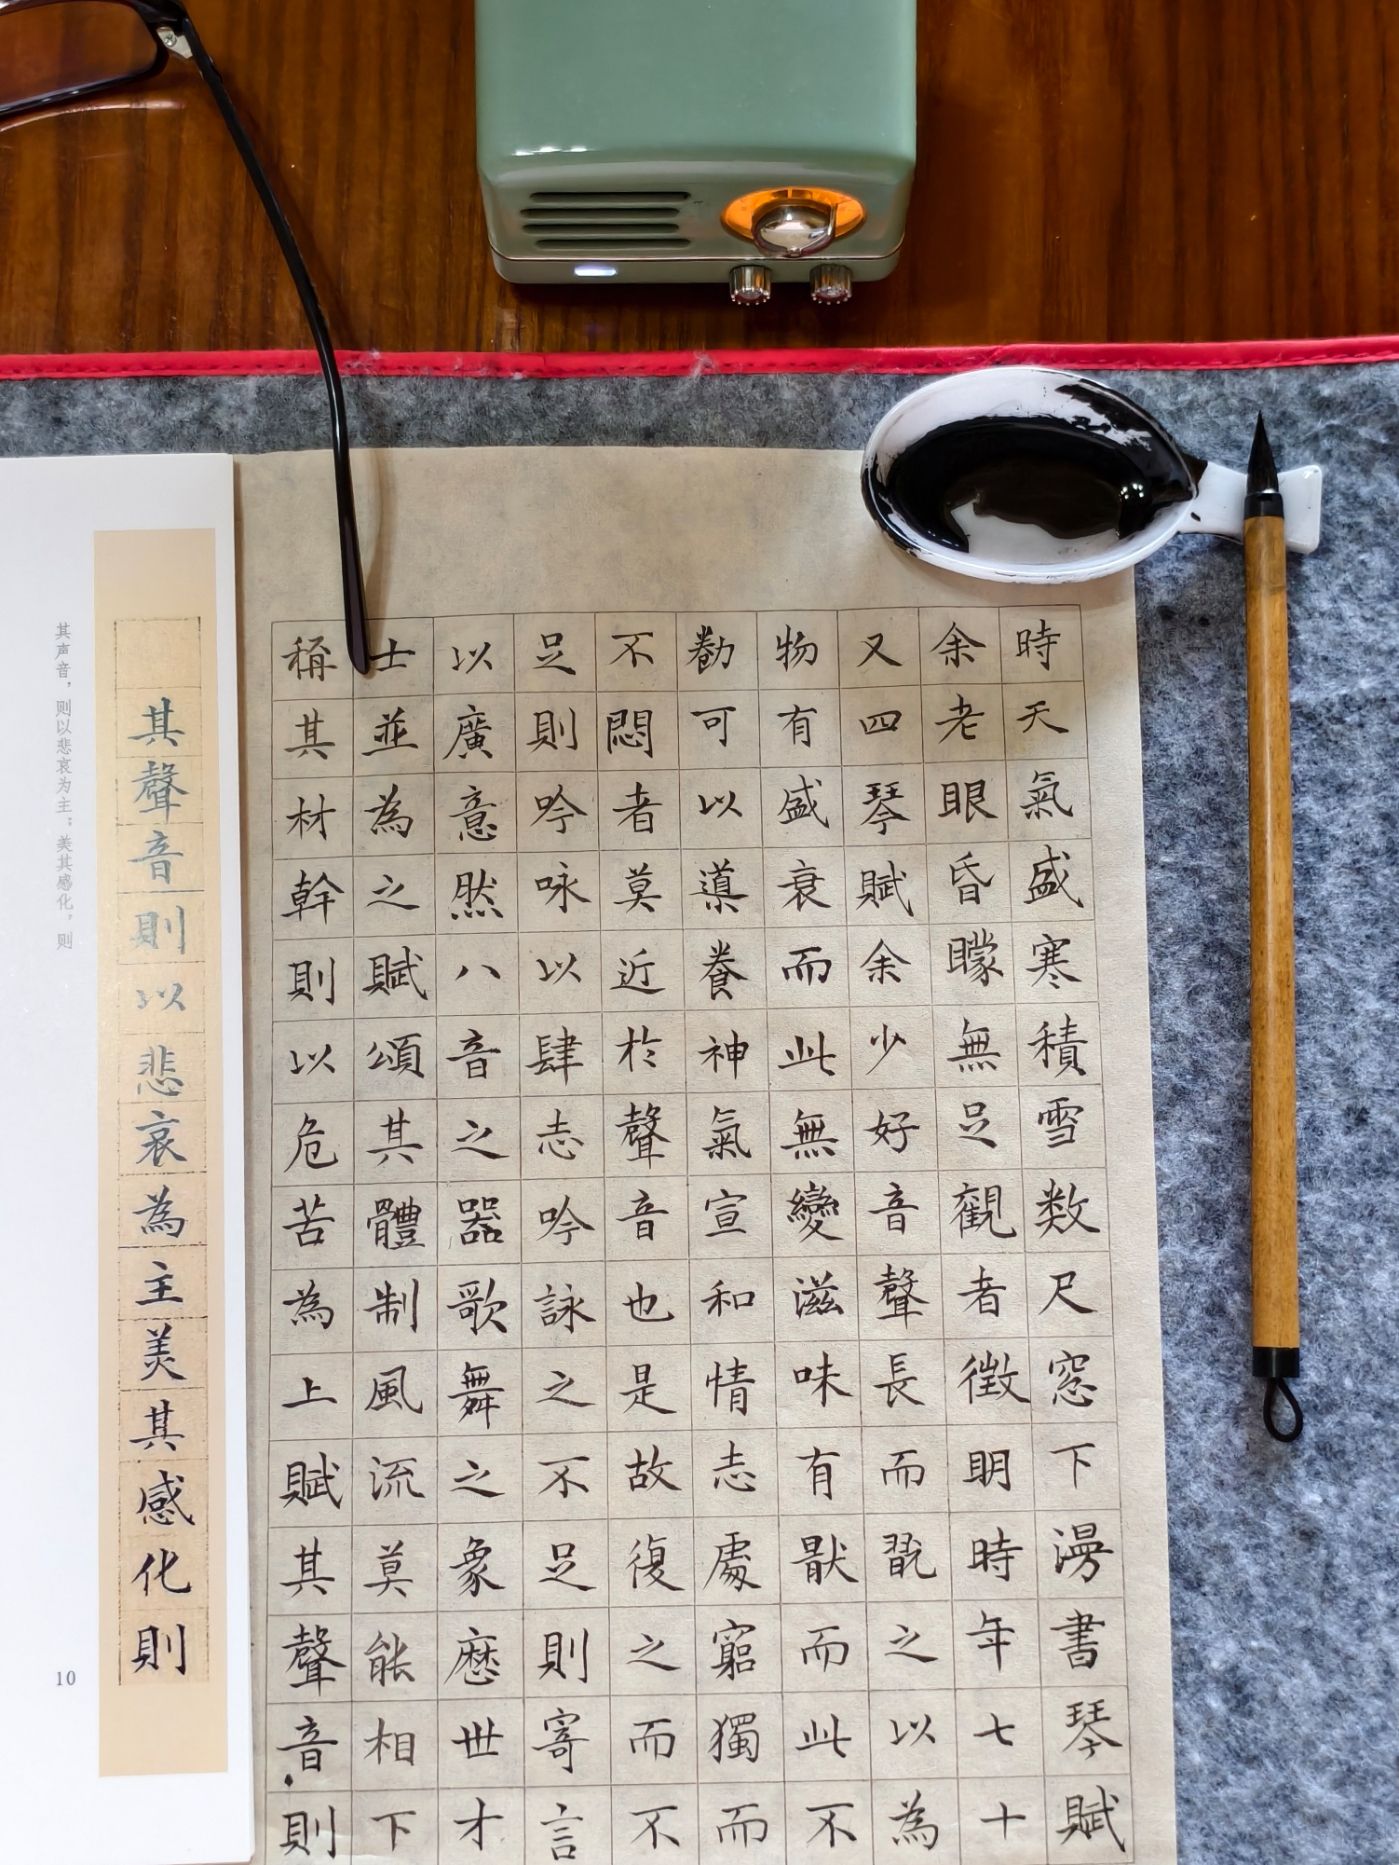 時天氣盛寒積雪数尺窓下漫書琴賦
余老眼昏矇無足觀者徵明時年七十
又四琴賦余少好音聲長而翫之以為
物有盛衰而此無變滋味有猒而此不
勌可以導養神氣宣和情志處窮獨而
不悶者莫近於聲音也是故復之而不
足則吟咏以肆志吟詠之不足則寄言
以廣意然八音之器歌舞之象歷世才
士並為之賦頌其體制風流莫能相下
稱其材幹則以危苦為上賦其聲音則
其聲音則以悲哀為主美其感化則
其声音，则以悲哀为主；美其感化，则
10